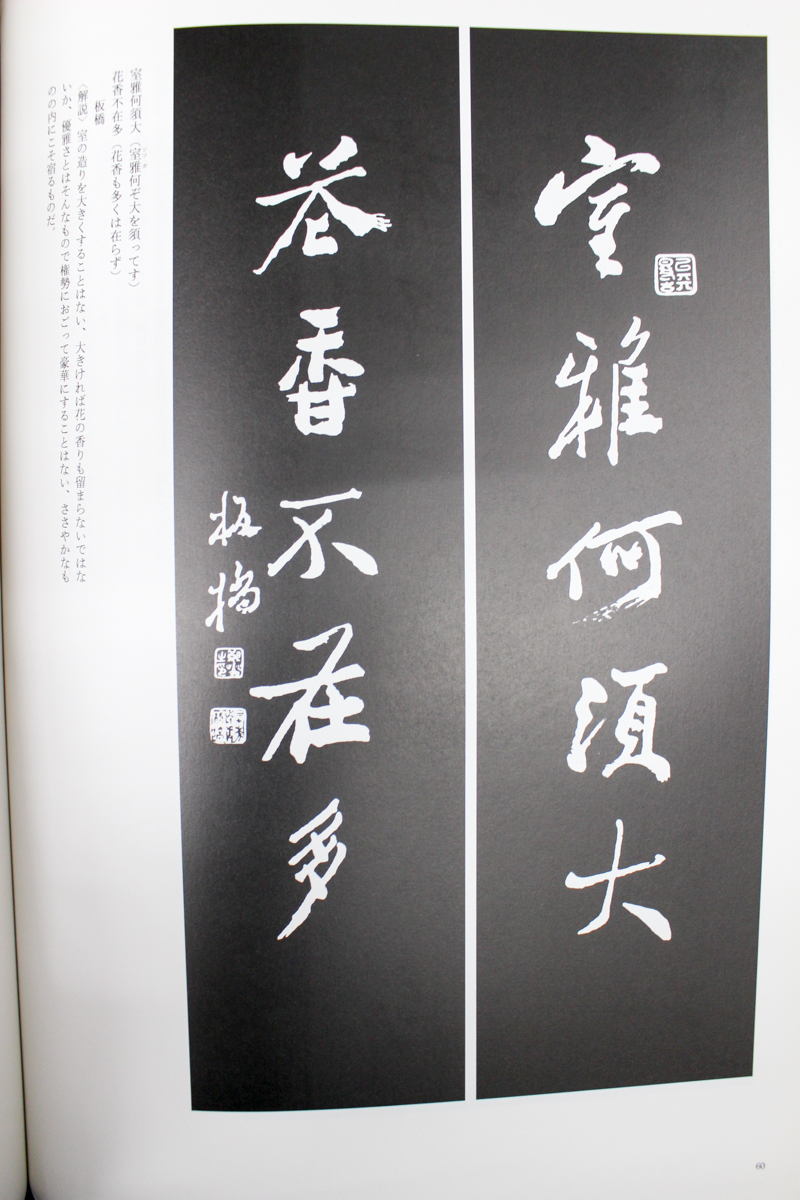 室雅何須大
花香不在多
板橋
室雅何須大（室雅何ぞ大を須ってす）
花香不在多（花香も多くは在らず）
板橋
〈解説〉室の造りを大きくすることはない、大きければ花の香りも留まらないではな
いか、優雅さとはそんなもので権勢におごって豪華にすることはない、ささやかなも
のの内にこそ宿るものだ。
60